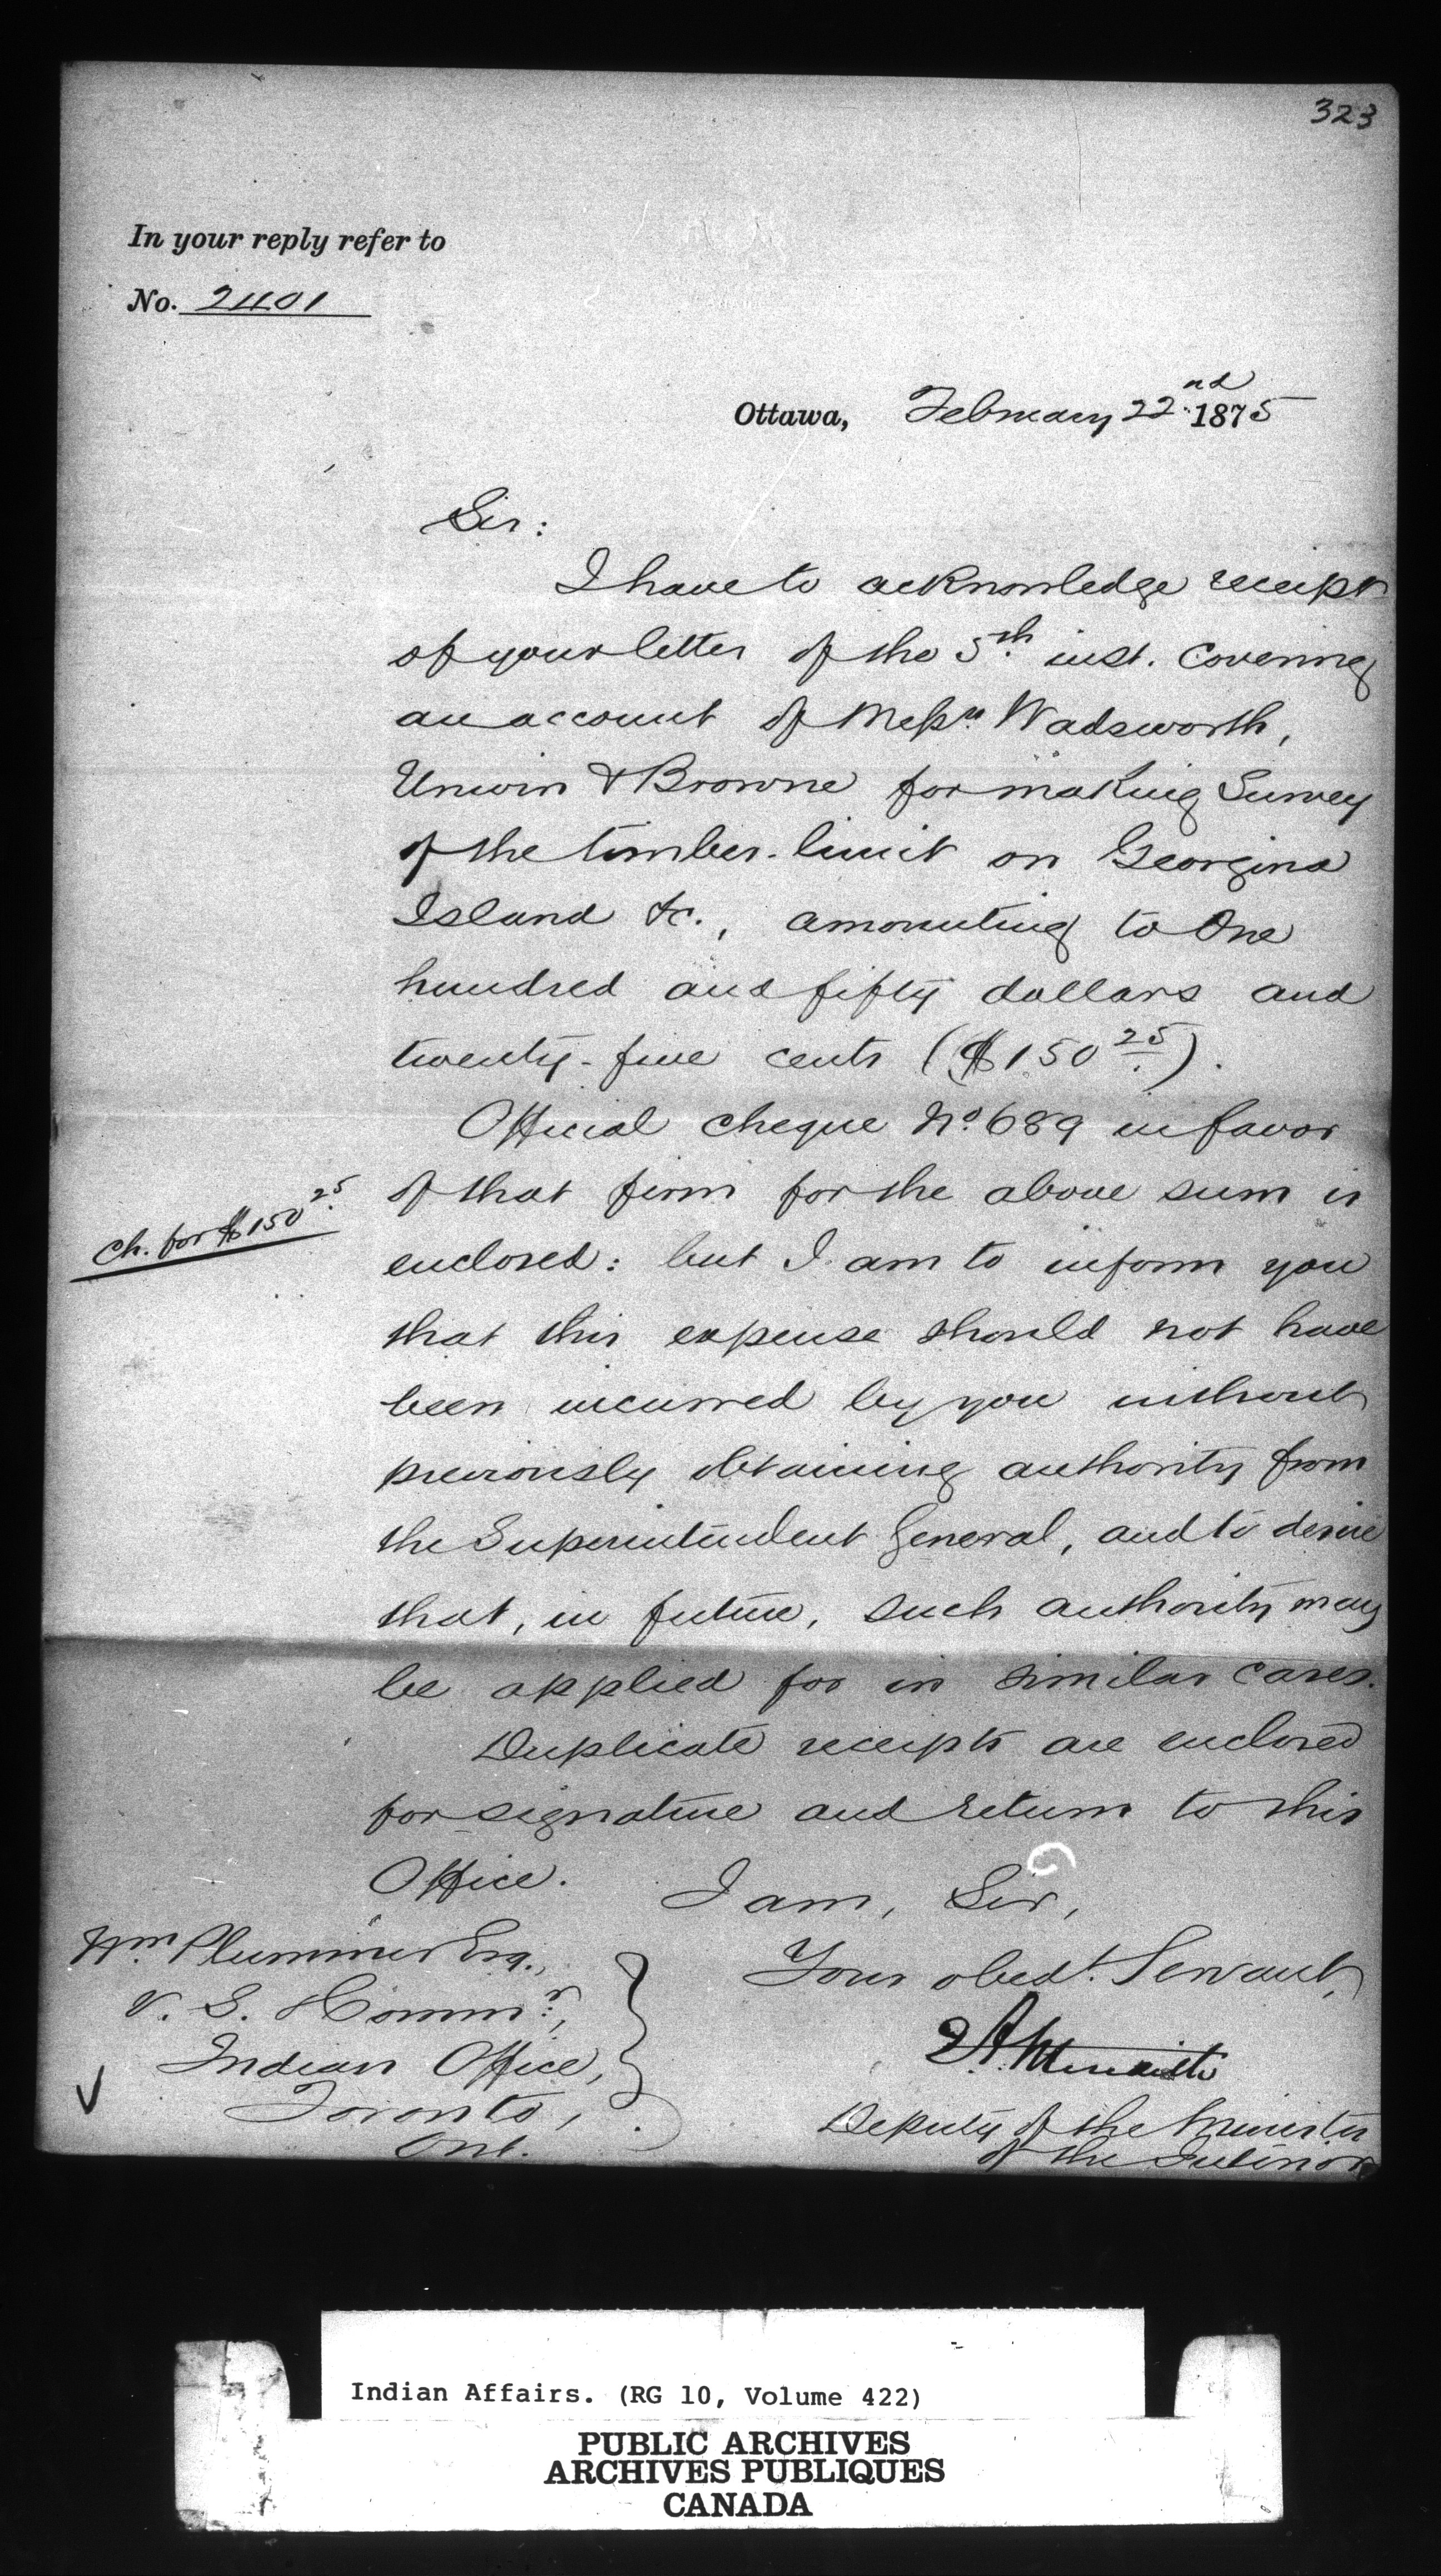 323
In your reply refer to
No. 2401
Ottawa, February 22nd 1875
Sir:
I have to acknowledge receipt
of your letter of the 5th inst. covering
an account of Messrs Wadsworth,
Unwin & Browne for making Survey
of the timber-limit on Georgina
Island &c., amounting to One
hundred and fifty dollars and
twenty-five cents ($150 25).
Official cheque No 689 in favor
of that firm for the above sum is
Ch. for $150 25
enclosed: but I am to inform you
that this expense should not have
been incurred by you without
previously obtaining authority from
the Superintendent General, and to desire
that, in future, such authority may
be applied for in similar cases.
Duplicate receipts are enclosed
for signature and return to this
Office.
I am, Sir,
Your obedt. Servant,
Wm Plummer Esq.,
V. S. Commr,
Indian Office,
Toronto,
Ont.
E A Meredith
Deputy of the Minister
of the Interior
Indian Affairs. (RG 10, Volume 422)
PUBLIC ARCHIVES
ARCHIVES PUBLIQUES
CANADA